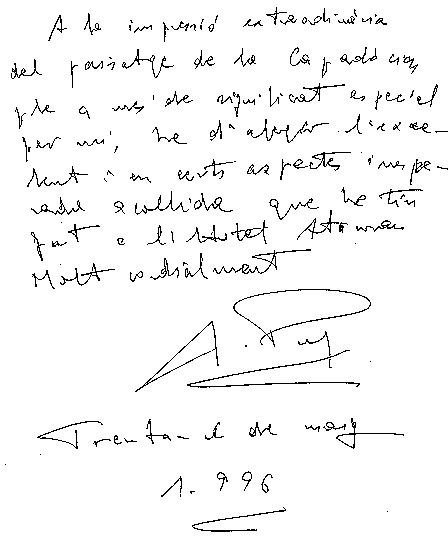 A la impressió extraordinària
del paisatge de la Capadòcia,
ple a més de significat especial
per mi, he d'afegir l'exce-
lent i en certs aspectes inespe-
rada acollida que he tin
gut a l'Hotel Ataman
Molt cordialment
A. Puig
Trenta-u de maig
1.996